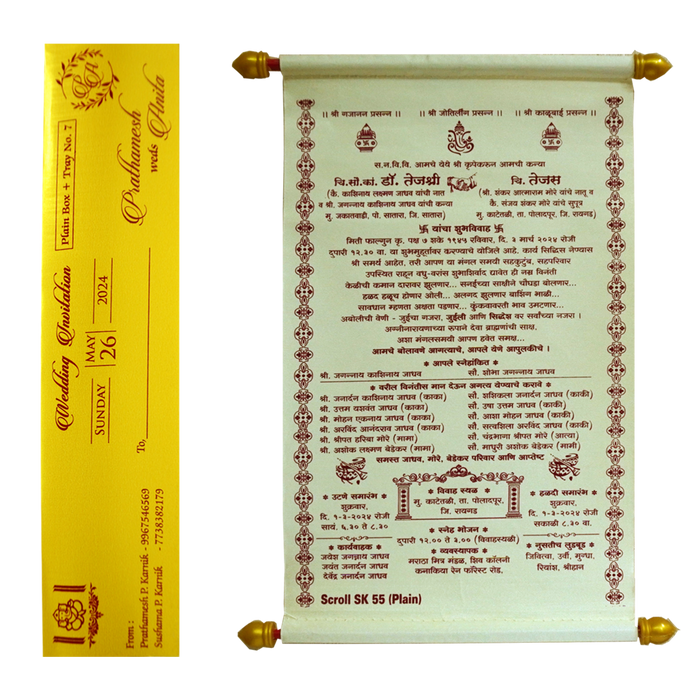 PA
Prathamesh
weds Anita
Plain Box + Tray No. 7
Wedding Invitation
SUNDAY
MAY
26
2024
To,
From :
Prathamesh P. Karnik - 9967546569
Sushama P. Karnik - 7738382179
|| श्री गजानन प्रसन्न || || श्री जोतिर्लींग प्रसन्न || || श्री काळूबाई प्रसन्न ||
स.न.वि.वि. आमचे येथे श्री कृपेकरुन आमची कन्या
चि.सौ.कां. डॉ. तेजश्री चि. तेजस
(कै. काशिनाथ लक्ष्मण जाधव यांची नात (श्री. शंकर आत्माराम मोरे यांचे नातू व
व श्री. जगन्नाथ काशिनाथ जाधव यांची कन्या कै. संजय शंकर मोरे यांचे सुपूत्र
मु. जकातवाडी, पो. सातारा, जि. सातारा) मु. काटेतळी, ता. पोलादपूर, जि. रायगड)
卐 यांचा शुभविवाह 卐
मिती फाल्गुन कृ. पक्ष ७ शके १९४५ रविवार, दि. ३ मार्च २०२४ रोजी
दुपारी १२.३० वा. या शुभमुहूर्तावर करण्याचे योजिले आहे. कार्य सिद्धिस नेण्यास
श्री समर्थ आहेत, तरी आपण या मंगल समयी सहकुटुंब, सहपरिवार
उपस्थित राहून वधु-वरांस शुभाशिर्वाद द्यावेत ही नम्र विनंती
केळीची कमान दारावर झुलणार... सनईच्या साथीने चौघडा बोलणार...
हळद हळूच होणार ओली... अलगद झुलणार बाशिंग भाळी...
सावधान म्हणता अक्षता पडणार... कुंकवावरती भाव उमटणार...
अबोलीची वेणी - जुईचा गजरा, जुईली आणि सिद्धेश वर सर्वांच्या नजरा !
अग्नीनारायणाच्या रूपाने देवा ब्राह्मणांची साक्ष,
अशा मंगलसमयी आपण हवेत समक्ष...
आमचे बोलावणे आगत्याचे, आपले येणे आपुलकीचे !
* आपले स्नेहांकित *
श्री. जगन्नाथ काशिनाथ जाधव सौ. शोभा जगन्नाथ जाधव
* वरील विनंतीस मान देऊन अगत्य येण्याचे करावे *
श्री. जनार्दन काशिनाथ जाधव (काका) सौ. शशिकला जनार्दन जाधव (काकी)
श्री. उत्तम यशवंत जाधव (काका) सौ. उषा उत्तम जाधव (काकी)
श्री. मोहन एकनाथ जाधव (काका) सौ. आशा मोहन जाधव (काकी)
श्री. अरविंद आनंदराव जाधव (काका) सौ. सत्वशिला अरविंद जाधव (काकी)
श्री. श्रीपत हरिबा मोरे (मामा) सौ. चंद्रभागा श्रीपत मोरे (आत्या)
श्री. अशोक लक्ष्मण बेडेकर (मामा) सौ. माधुरी अशोक बेडेकर (मामी)
समस्त जाधव, मोरे, बेडेकर परिवार आणि आप्तेष्ट
* उटणे समारंभ *
शुक्रवार,
दि. १-३-२०२४ रोजी
सायं. ६.३० ते ८.३०
* विवाह स्थळ *
मु. काटेतळी, ता. पोलादपूर,
जि. रायगड
* हळदी समारंभ *
शुक्रवार,
दि. १-३-२०२४ रोजी
सकाळी ८.३० वा.
* स्नेह भोजन *
दुपारी १२.०० ते ३.०० (विवाहस्थळी)
* कार्यवाहक *
जयेश जगन्नाथ जाधव
जयंत जनार्दन जाधव
देवेंद्र जनार्दन जाधव
* व्यवस्थापक *
मराठा मित्र मंडळ, शिव कॉलनी
कनाकिया रेन फॉरेस्ट रोड,
* नुसतीच लुडबूड *
जिवित्वा, उर्वी, मुग्धा,
रियांश, श्रीहान
Scroll SK 55 (Plain)